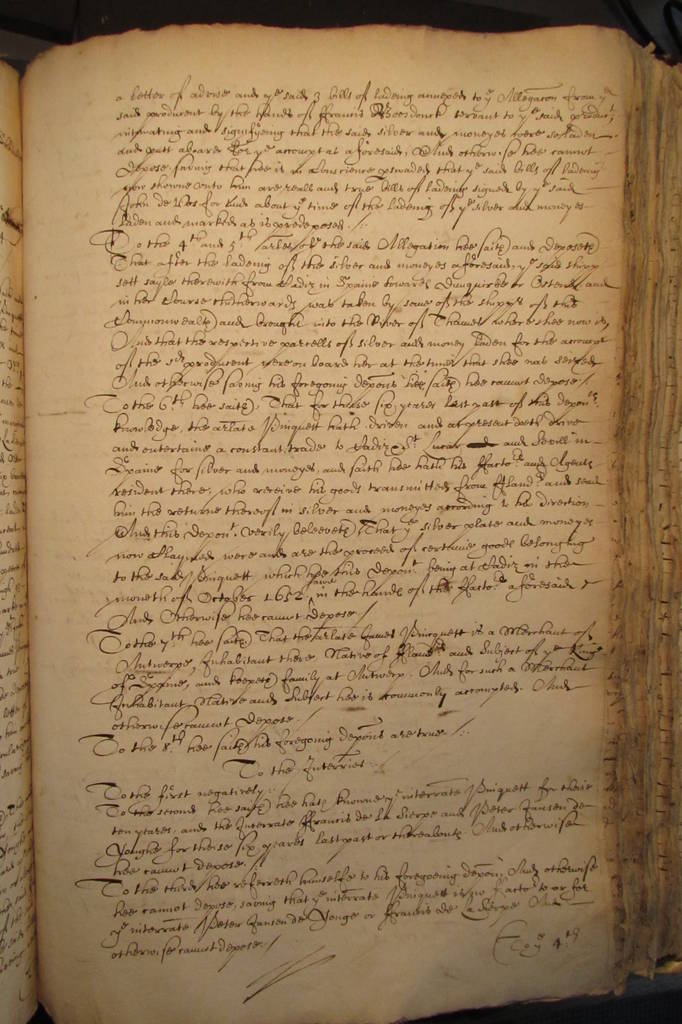 a letter of advise and ye said 3 bills of ladeing annexed to ye Allegacon from ye
said producent by the hands of ffrancis servant to ye said producent
intimating and signifyeing that the said silver and moneyes were so laden
and putt aboard for ye accompt as aforesaid, And otherwise hee cannot
depose saving that hee is in Conscience perswaded that ye said bills of ladeing
now showne unto him are reall and true bills of ladeing signed by ye said
John de for and about ye time of the ladeing of ye silver and moneyes
laden and marked as is predeposed./:
To the 4th and 5th arles of the said Allegation hee saith and deposeth
That after the ladeing of the silver and moneyes aforesaid, ye said shipp
sett sayle therewith from Cadiz in Spaine towards Dunquirke or Ostend and
in her Course thitherwards was taken by some of the shipps of this
Commonwealth and brought into the River of Thames where shee now is
And that the respective parcells of silver and money laden for the accompt
of the sd producent were on board her at the time that shee was seized
And otherwise saving his foregoing depons hee saith hee cannot depose /
To the 6th hee saith, That for these six yeares last past of this deponts
knowledge, the arlate Pinquett hath driven and at present doth drive
and entertaine a constant trade to Cadiz St. lucar and Sevill in
Spaine for silver and moneyes, and saith hee hath his ffactors and Agents
resident there, who receive his goods transmitted from ffland and send
him the returne thereof in silver and moneyes according to his direction
And this depont verily beleeveth That ye silver plate and moneyes
now claymed were and are the proceed of certaine goods belonging
to the said Pinquett which hee this depont being at Cadiz in the
moneth of October 1652 sawe in the hands of the ffactors aforesaid
And Otherwise hee cannot depose /
To the 7th hee saith That the arlate James Pincquett is a Merchant of
Antwerpe, Inhabitant there, Native of flanders and Subject of ye King
of Spaine, and keepeth family at Antwerp. And for such a Merchant
Inhabitant Native and Subject hee is commonly accompted. And
otherwise cannot depose.
To the 8th hee saith his foregoing depons are true /:
To the Interries.
To the first negatively.
To the second hee saith hee hath knowne ye interrate Pinquett for theis
ten yeares, and the Interrate ffrancis de la Sierpe and Peter Jansen de
Yonghe for these six yeares last past or thereabouts. And otherwise
hee cannot depose. /
To the third hee referreth himselfe to his foregoeing depon. And otherwise
hee cannot depose, saving that ye interrate Pinquett is no factor to or for
ye interrate Peter Jansen de Yonge or ffrancis de la Sierpe And
otherwise cannot depose. /
To ye 4th